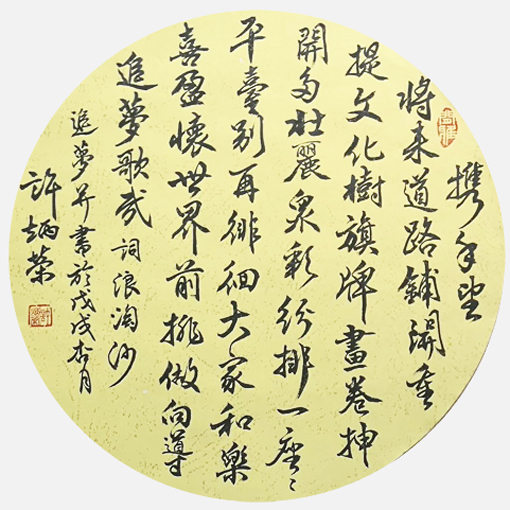 携手望
將来道路鋪開重
提文化樹旗牌畫卷抻
開多壯麗衆彩紛排一座々
平臺別再徘徊大家和樂
喜盈懷世界前排做向導
追夢歌哉 詞浪淘沙
追夢并書於戊戌杏月
許炳榮